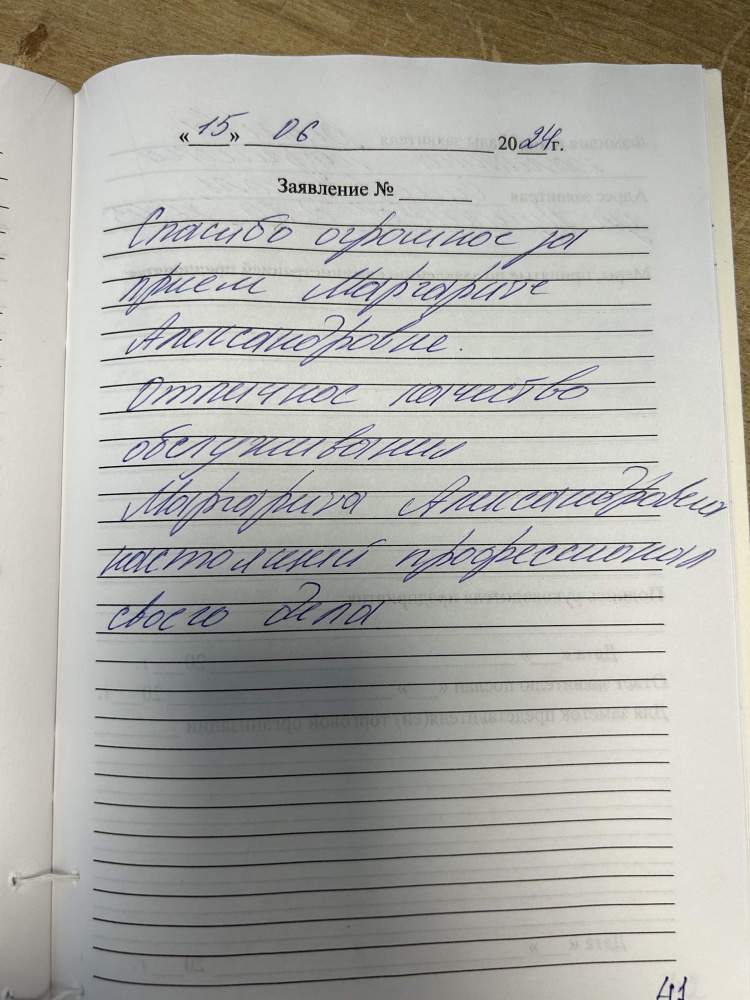 «15» 06 2024г.
Заявление №
Спасибо огромное за
прием Маргарите
Александровне.
Отличное качество
обслуживания
Маргарита Александровна
настоящий профессионал
своего дела
41